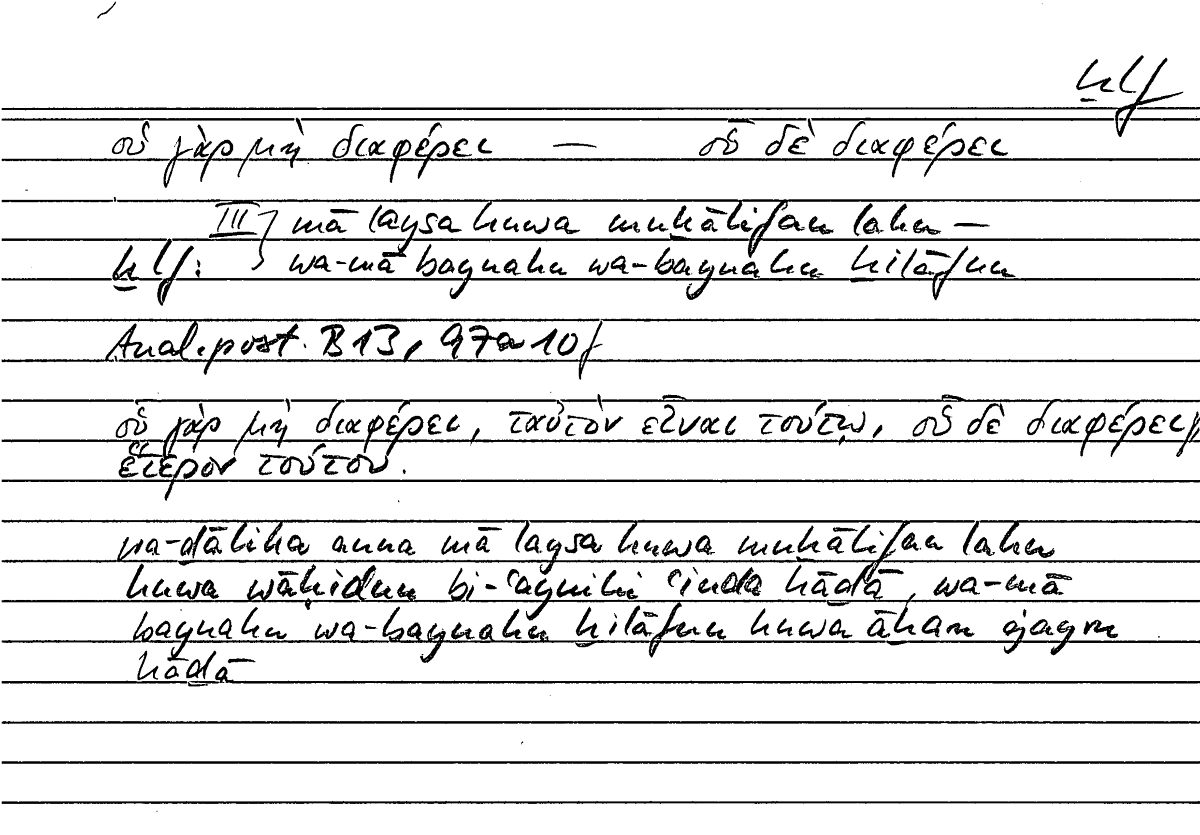 ḫlf
οὗ γὰρ μὴ διαφέρει — οὗ δὲ διαφέρει
III mā laysa huwa muḫālifan lahu —
ḫlf: wa-mā baynahu wa-baynahu ḫilāfun
Anal. post. B 13, 97a10f
οὗ γὰρ μὴ διαφέρει, ταὐτὸν εἶναι τούτῳ, οὗ δὲ διαφέρει,
ἕτερον τούτου.
wa-ḏālika anna mā laysa huwa muḫālifan lahu
huwa wāḥidun bi-ʿaynihi ʿinda hāḏā, wa-mā
baynahu wa-baynahu ḫilāfun huwa āḫaru ġayru
hāḏā